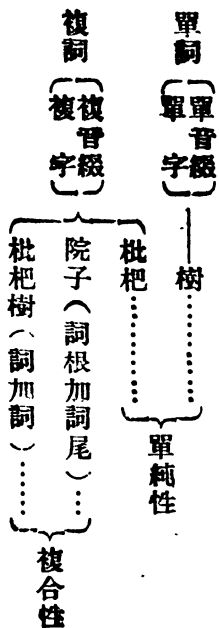 單詞
單音綴
單字
樹………
單純性
複詞
複音綴
複字
枇杷………
院子(詞根加詞尾)……
枇杷樹(詞加詞)……
複合性